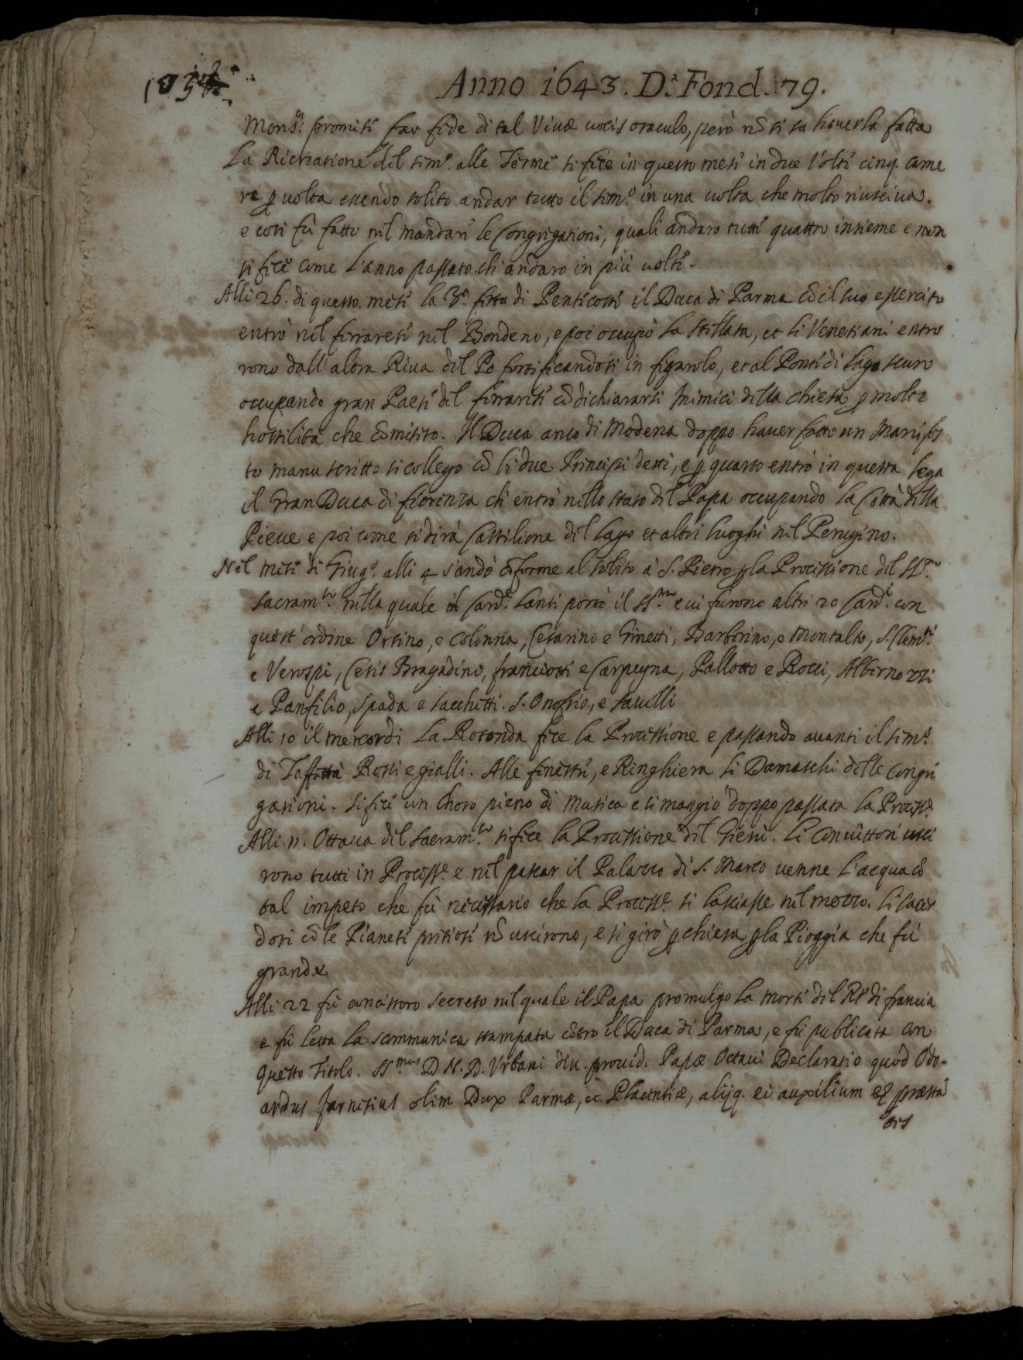 1052
Anno 1643. D.ª Fond. 79.
Mons.r promise far fede di tal Vivæ vocis oraculo, però nō si sa haverla fatta
La Ricreatione del Sem.º alle Terme si fece in questo mese in due Volte cinq. Came
re ꝑ volta essendo solito andar tutto il Sem.º in una volta che molto riusciva.
e così fù fatto nel mandare le Congregationi, quali andaro tutte quattro insieme e non
si fece come l'anno passato ch'andaro in più volte.
Alli 26. di questo mese la 3.ª festa di Pentecoste il Duca di Parma cō il suo essercito
entrò nel ferrarese nel Bondeno, e poi occupò la Stellata, et li Venetiani entra
rono dall'altra Riva del Po fortificandosi in figarolo, et al Ponte di lago scuro
occupando gran Paese del ferrarese cō dichiararsi Inimici della chiesa ꝑ molte
hostilità che cōmisero. Il Duca anco di Modena doppo haver fatto un Manifes
to manu scritto si collegò cō li due Principi detti, e ꝑ quarto entrò in questa lega
il Gran Duca di fiorenza ch'entrò nello stato del Papa occupando la Città della
Pieve e poi come si dirà Castilione del Lago et altri luoghi nel Perugino.
Nel mese di Giug.º alli 4 s'andò cōforme al solito à S. Pietro ꝑ la Processione del SS.mo
Sacram.to nella quale il Card.l Lanti portò il SS.mo e vi furono altri 20 Card.li con
quest'ordine Orsino, e Colonna, Cesarino e Ginetti, Barberino, e Montalto, S. Clem.te
e Verospi, Cesis Bragadino, franciotti e Carpegna, Pallotto e Rocci, Albernozzi
e Panfilio, Spada e Sacchetti. S. Onofrio, e Savelli
Alli 10 il mercordi La Rotonda fece la Processione e passando avanti il Sem.º
di Taffettà Rossi e gialli. Alle finestre, e Ringhiera li Damaschi delle Congre
gationi. Si fece un Choro pieno di Musica e si mangiò doppo passata la Process.e
Alli 11. Ottava del Sacram.to si fece la Processione del Giesù. Li Convittori usci
rono tutti in Process.e e nel passar il Palazzo di S. Marco venne l'acqua cō
tal impeto che fù necessario che la Process.e si lasciasse nel mezzo. Li Sacer
doti cō le Pianete pretiose nō uscirono, e si girò ꝑ chiesa ꝑ la Pioggia che fù
grande
Alli 22 fù concistoro secreto nel quale il Papa promulgò la morte del Rè di francia
e fù letta la scommunica stampata cōtro il Duca di Parma, e fù publicata con
questo Titolo. SS.mus D. N. D. Urbani div. provid. Papæ Octavi Declaratio quòd Odo-
ardus farnesius olim Dux Parmæ, et Placentiæ, alijq. ei auxilium præstā
tes